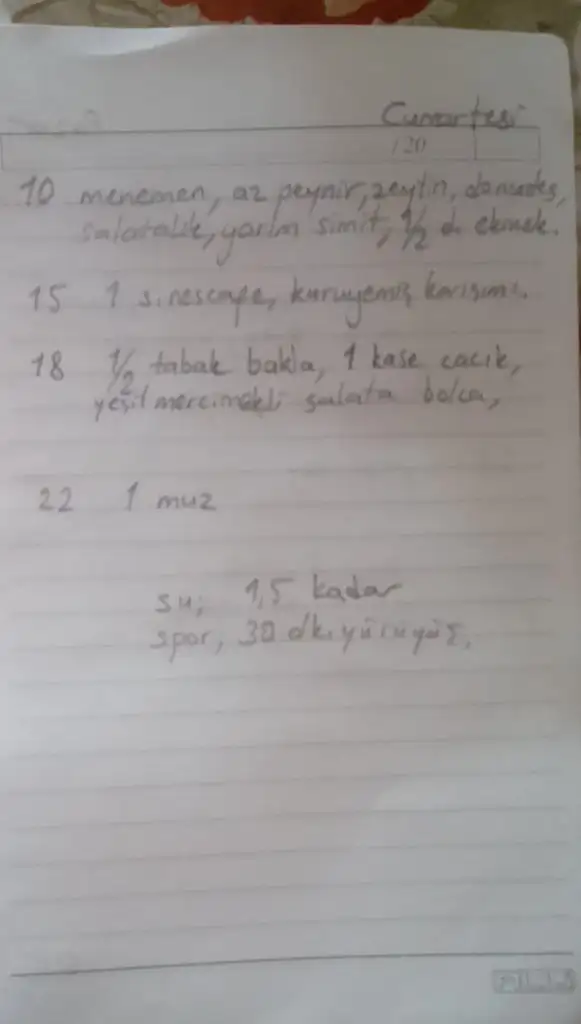 Cumartesi
/ 20
10 menemen, az peynir, zeytin, domates,
salatalık, yarım simit, 1/2 d. ekmek.
15 1 s. nescafe, kuruyemiş karışımı.
18 1/2 tabak bakla, 1 kase cacık,
yeşil mercimekli salata bolca,
22 1 muz
su; 1,5 kadar
spor, 30 dk. yürüyüş.